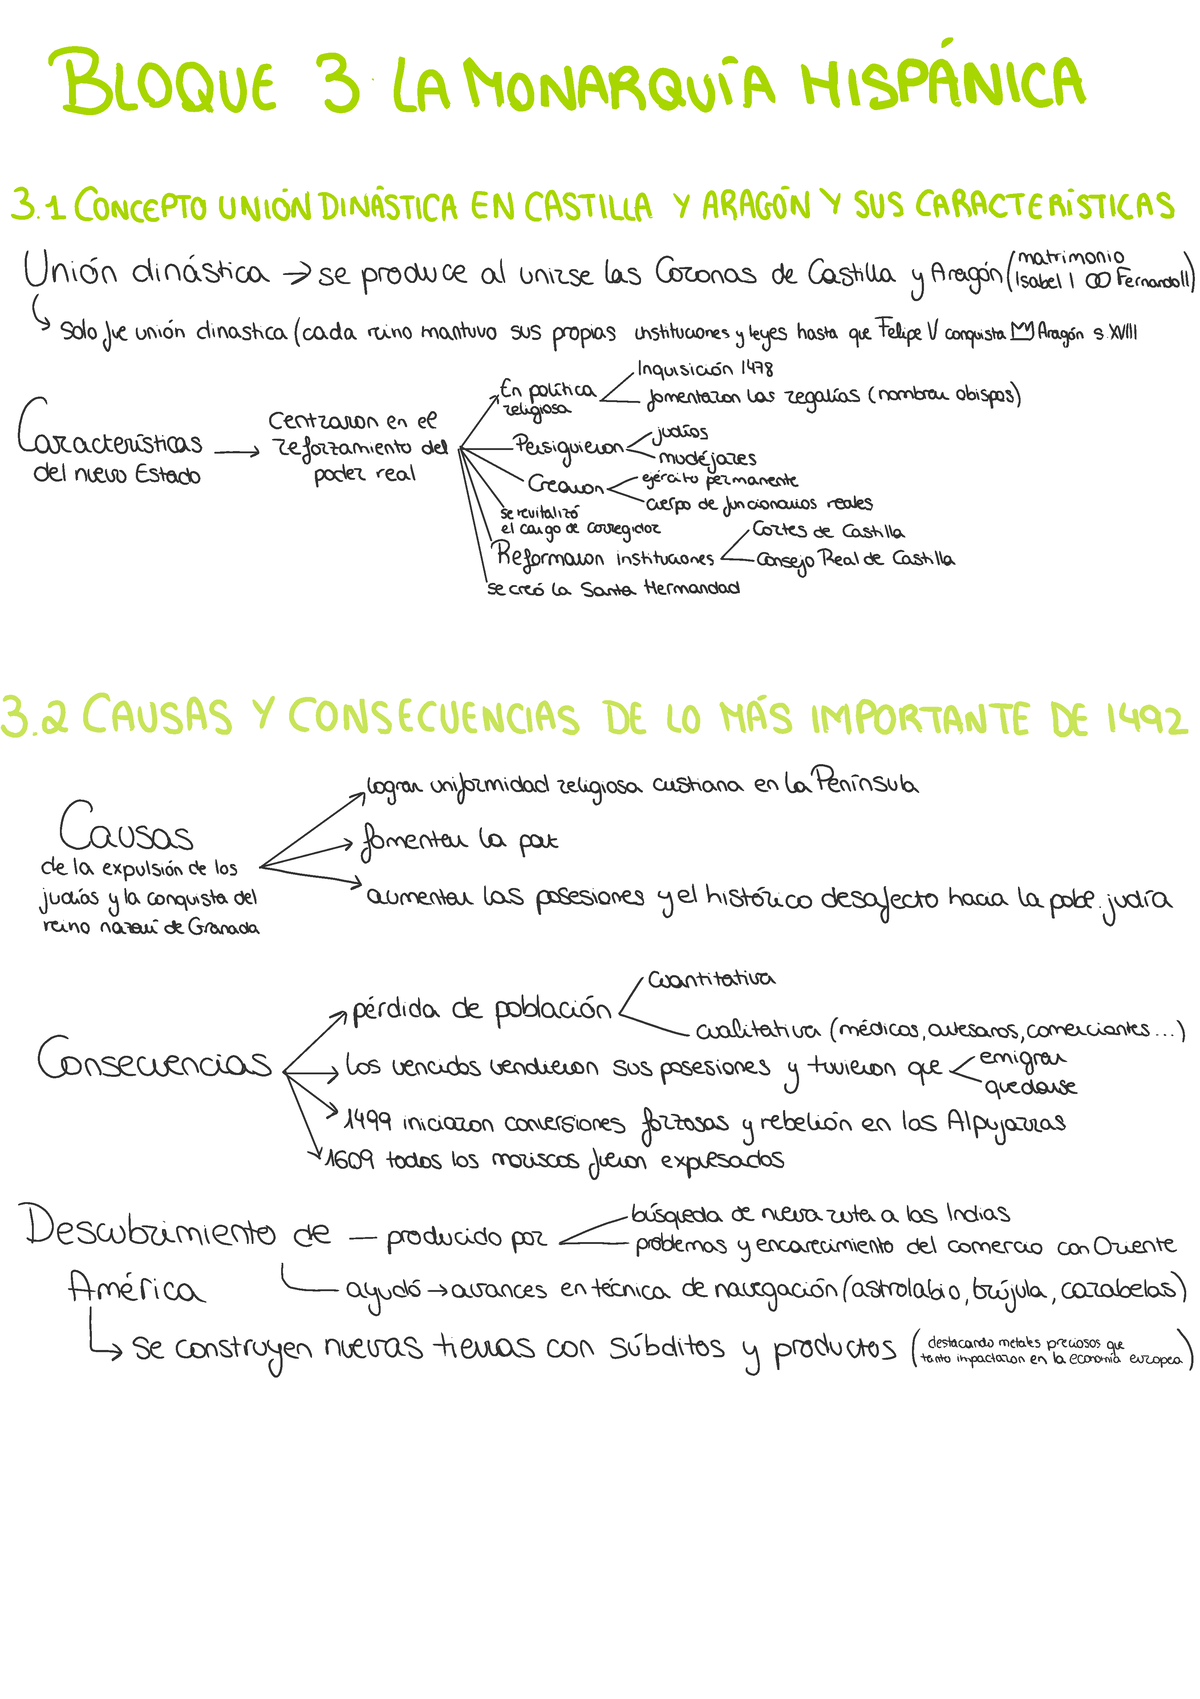 BLOQUE 3. LA MONARQUÍA HISPÁNICA
3.1 CONCEPTO UNIÓN DINÁSTICA EN CASTILLA Y ARAGÓN Y SUS CARACTERÍSTICAS
Unión dinástica → se produce al unirse las Coronas de Castilla y Aragón (matrimonio
Isabel I ∞ Fernando II)
↳ Solo fue unión dinastica (cada reino mantuvo sus propias instituciones y leyes hasta que Felipe V conquista Aragón s. XVIII
Características
del nuevo Estado
→ Centraron en el
reforzamiento del
poder real
En política
religiosa
Inquisición 1478
fomentaron las regalías (nombrar obispos)
Persiguieron
judíos
mudéjares
Crearon
ejército permanente
cuerpo de funcionarios reales
se revitalizó
el cargo de corregidor
Reformaron instituciones
Cortes de Castilla
Consejo Real de Castilla
se creó la Santa Hermandad
3.2 CAUSAS Y CONSECUENCIAS DE LO MÁS IMPORTANTE DE 1492
Causas
de la expulsión de los
judíos y la conquista del
reino nazarí de Granada
lograr uniformidad religiosa cristiana en la Península
fomentar la paz
aumentar las posesiones y el histórico desafecto hacia la pobl. judía
Consecuencias
pérdida de población
cuantitativa
cualitativa (médicos, artesanos, comerciantes...)
los vencidos vendieron sus posesiones y tuvieron que
emigrar
quedarse
1499 iniciaron conversiones forzosas y rebelión en las Alpujarras
1609 todos los moriscos fueron expulsados
Descubrimiento de
América
— producido por
búsqueda de nueva ruta a las Indias
problemas y encarecimiento del comercio con Oriente
ayudó → avances en técnica de navegación (astrolabio, brújula, carabelas)
↳ se construyen nuevas tierras con súbditos y productos (destacando metales preciosos que
tanto impactaron en la economía europea)